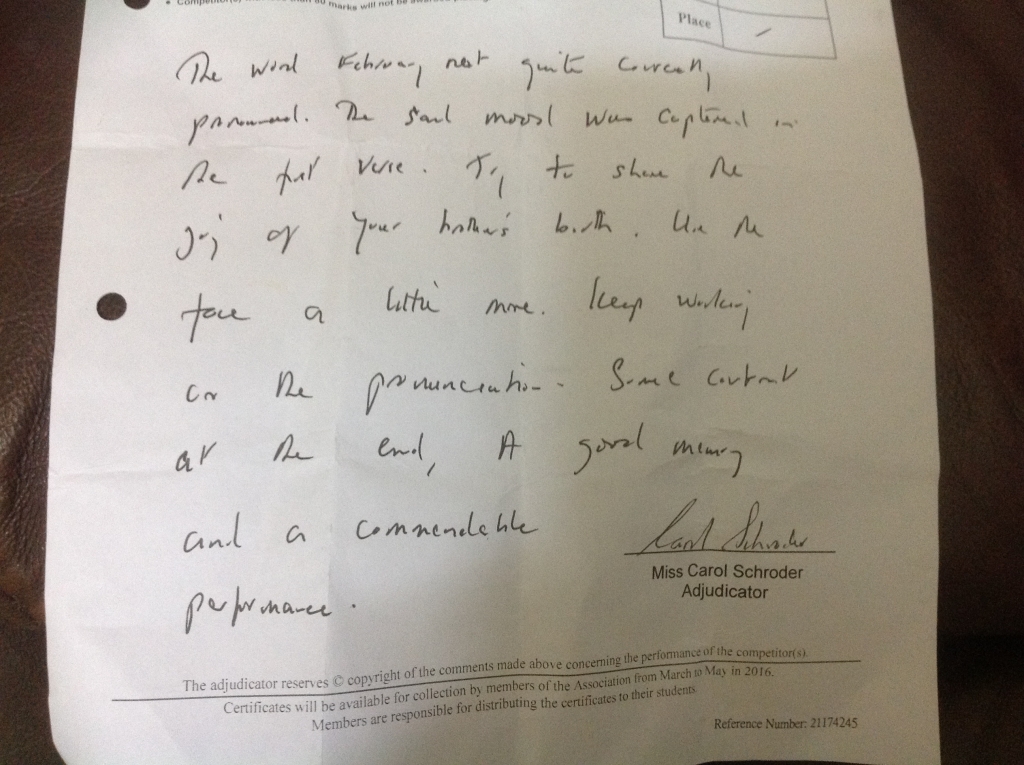 marks will not be
Place
The word February not quite correctly
pronounced. The sad mood was captured in
the first verse. Try to share the
joy of your brother's birth. Use the
face a little more. Keep working
on the pronunciation. Some contrast
at the end, A good memory
and a commendable
performance.
Carol Schroder
Miss Carol Schroder
Adjudicator
The adjudicator reserves © copyright of the comments made above concerning the performance of the competitor(s).
Certificates will be available for collection by members of the Association from March to May in 2016.
Members are responsible for distributing the certificates to their students.
Reference Number: 21174245